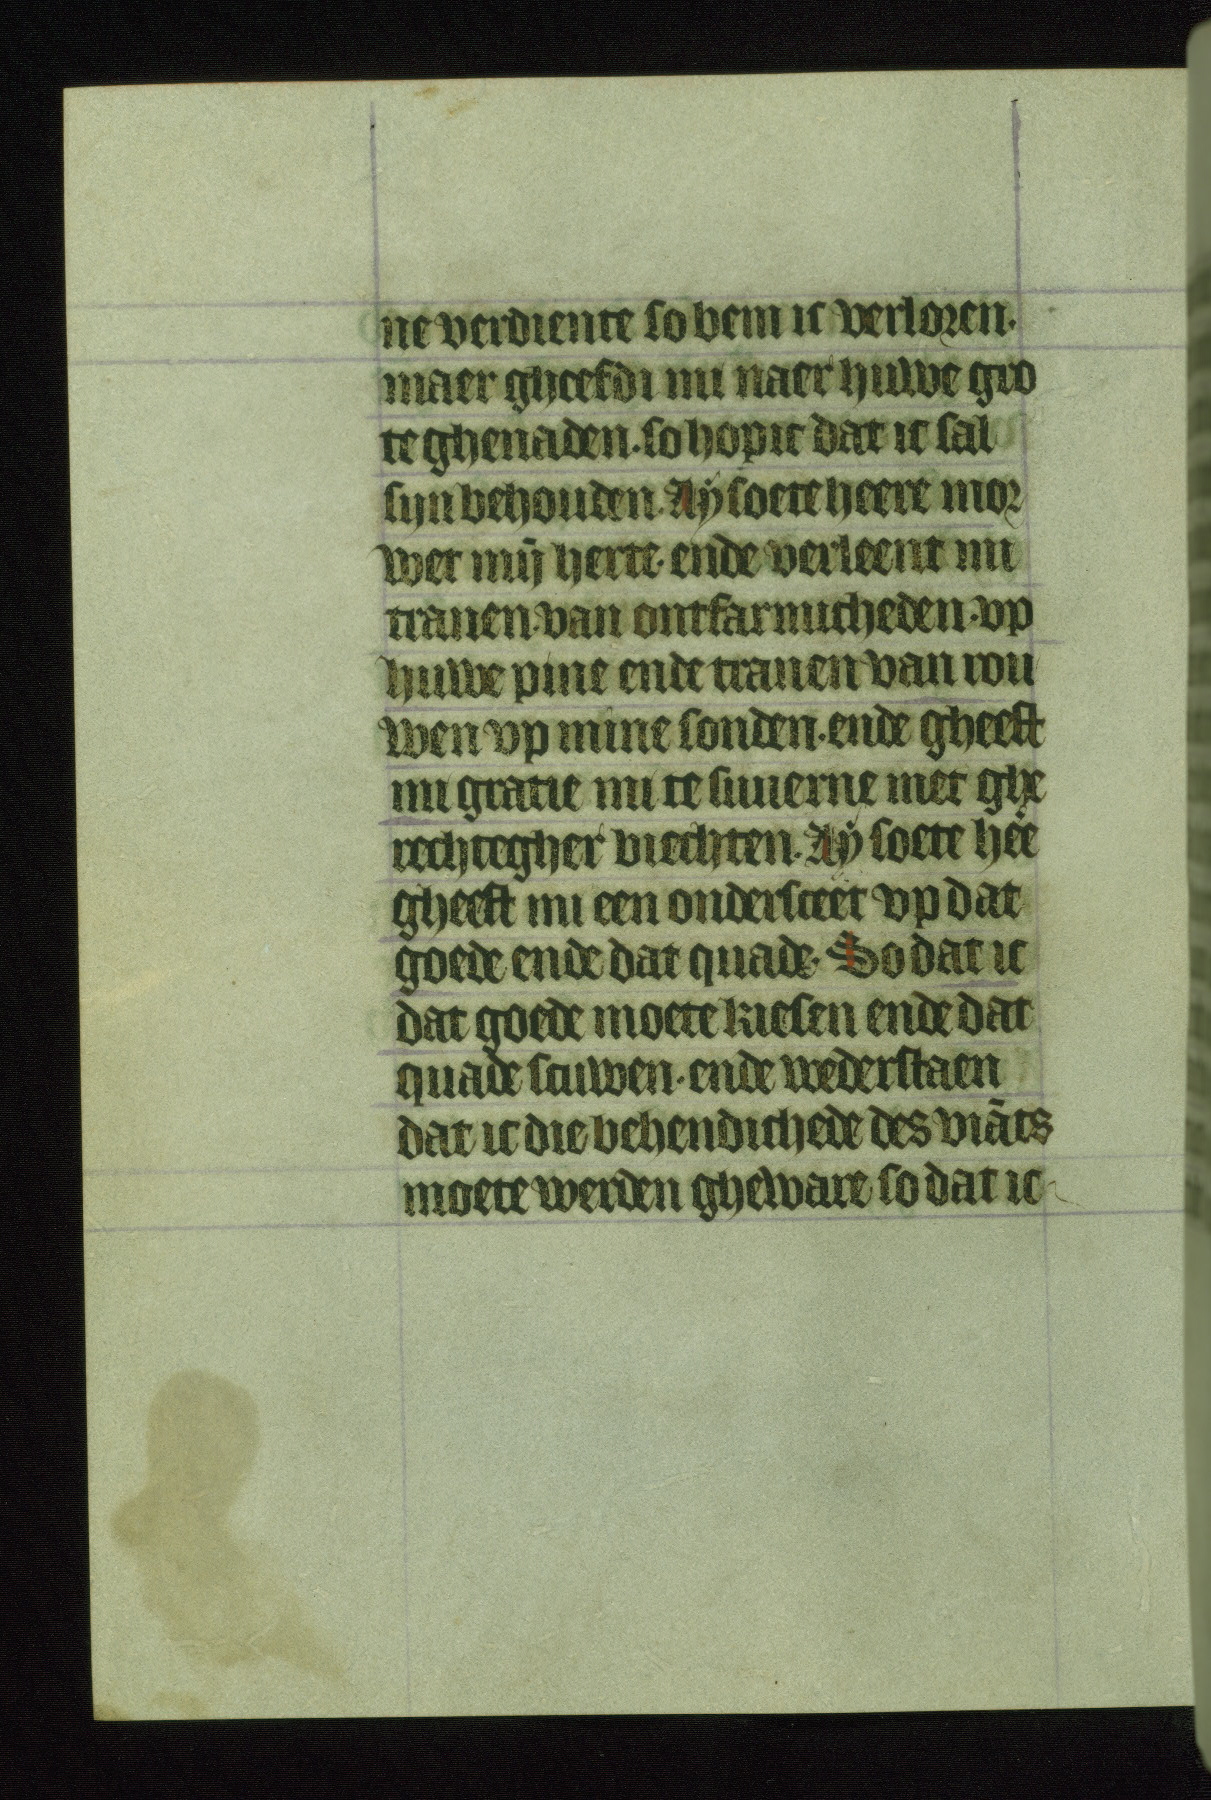 ne verdiente so bem ic verloren.
maer gheefdi mi naer huwe gro
te ghenaden. so hopic dat ic sal
syn behouden. Ay soete heere mor
wet mij herte. ende verleent mi
tranen. van ontfarmicheden. vp
huwe pine ende tranen van rou
wen vp mine sonden. ende gheeft
mi gratie mi te suuerne met ghe
rechtegher biechten. Ay soete heē
gheeft mi een ondersceet vp dat
goede ende dat quade. So dat ic
dat goede moete kiesen ende dat
quade scuwen. ende wederstaen
dat ic die behendichede des viāts
moete werden gheware so dat ic